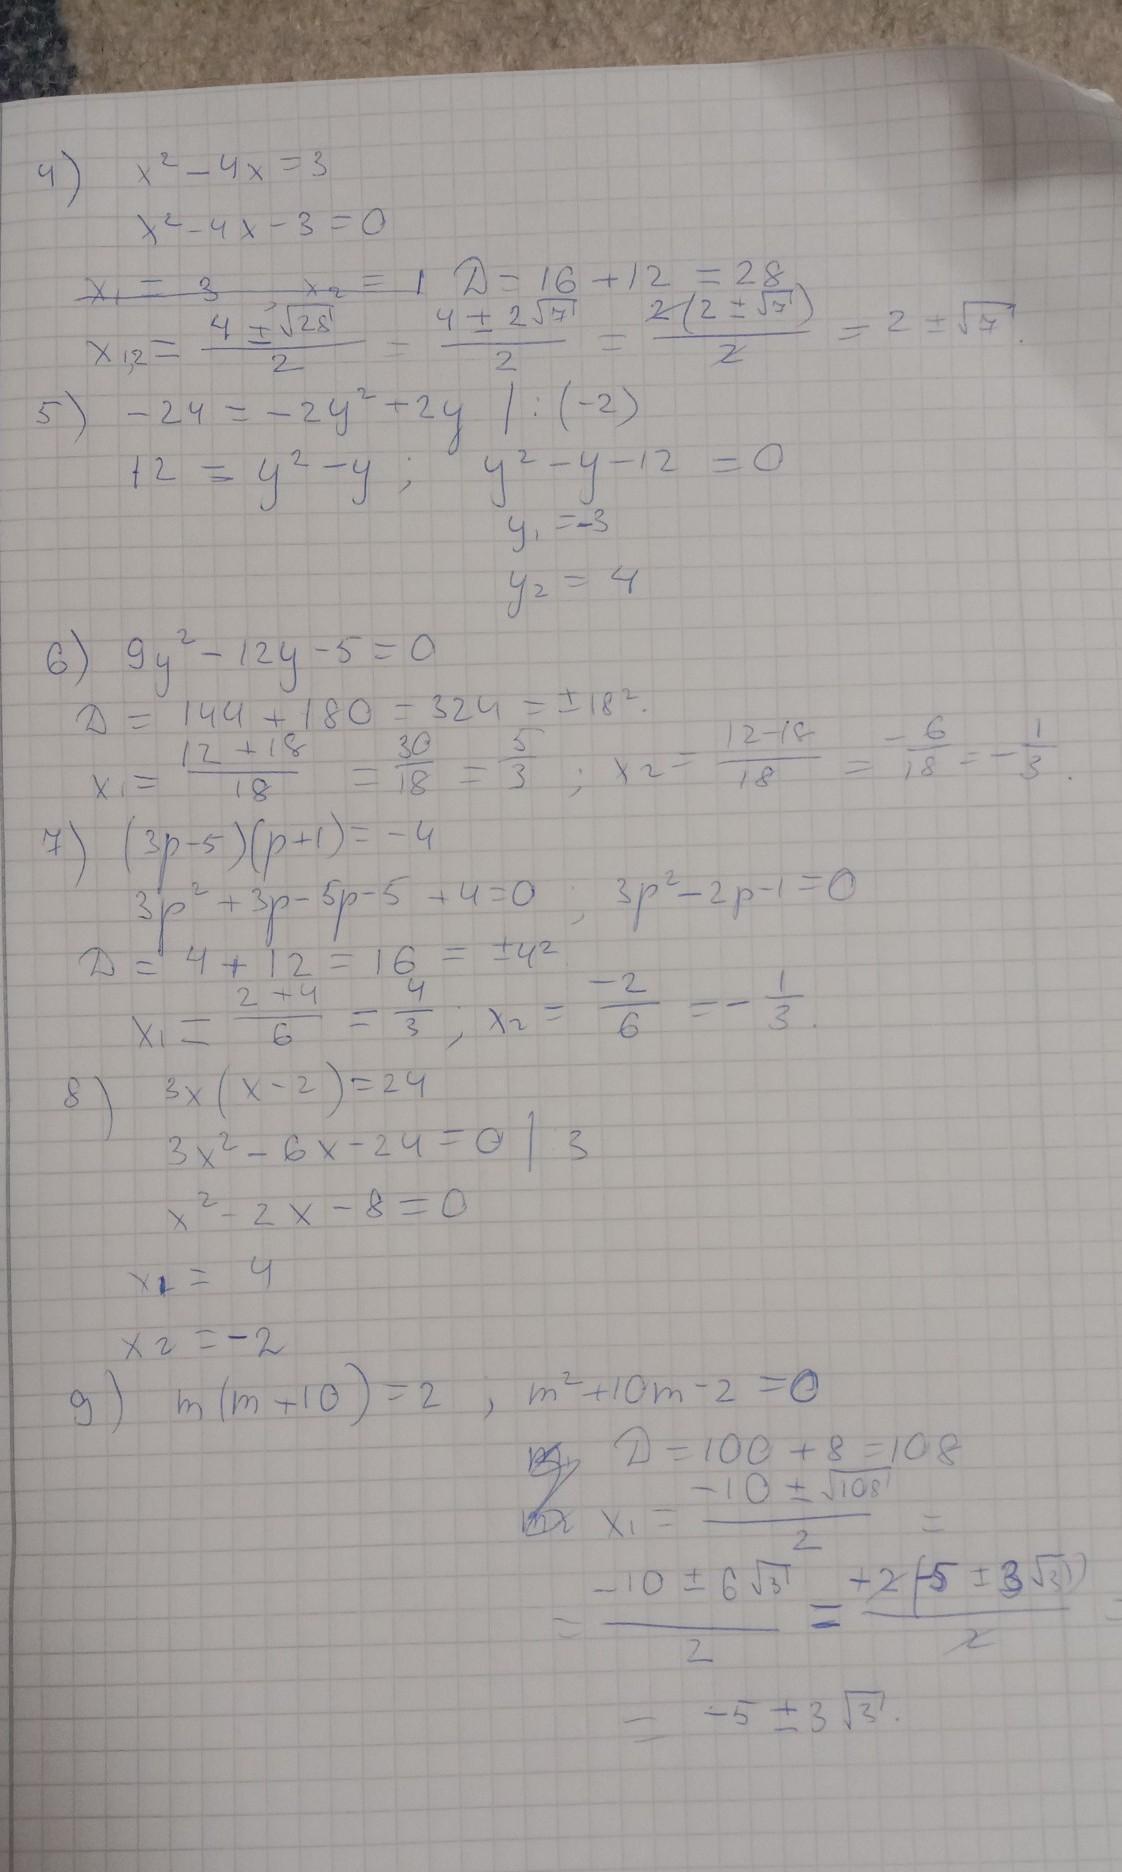 4) x² - 4x = 3
x² - 4x - 3 = 0
x₁ = 3, x₂ = 1 D = 16 + 12 = 28
x₁,₂ = (4 ± √28)/2 = (4 ± 2√7)/2 = 2(2 ± √7)/2 = 2 ± √7.
5) -24 = -2y² + 2y | : (-2)
12 = y² - y ; y² - y - 12 = 0
y₁ = -3
y₂ = 4
6) 9y² - 12y - 5 = 0
D = 144 + 180 = 324 = ±18².
x₁ = (12 + 18)/18 = 30/18 = 5/3 ; x₂ = (12 - 18)/18 = -6/18 = -1/3.
7) (3p - 5)(p + 1) = -4
3p² + 3p - 5p - 5 + 4 = 0 ; 3p² - 2p - 1 = 0
D = 4 + 12 = 16 = ±4²
x₁ = (2 + 4)/6 = 4/3 ; x₂ = -2/6 = -1/3.
8) 3x(x - 2) = 24
3x² - 6x - 24 = 0 | 3
x² - 2x - 8 = 0
x₁ = 4
x₂ = -2
9) m(m + 10) = 2 , m² + 10m - 2 = 0
D = 100 + 8 = 108
x₁ = (-10 ± √108)/2 =
= (-10 ± 6√3)/2 = +2(-5 ± 3√3)/2 =
= -5 ± 3√3.